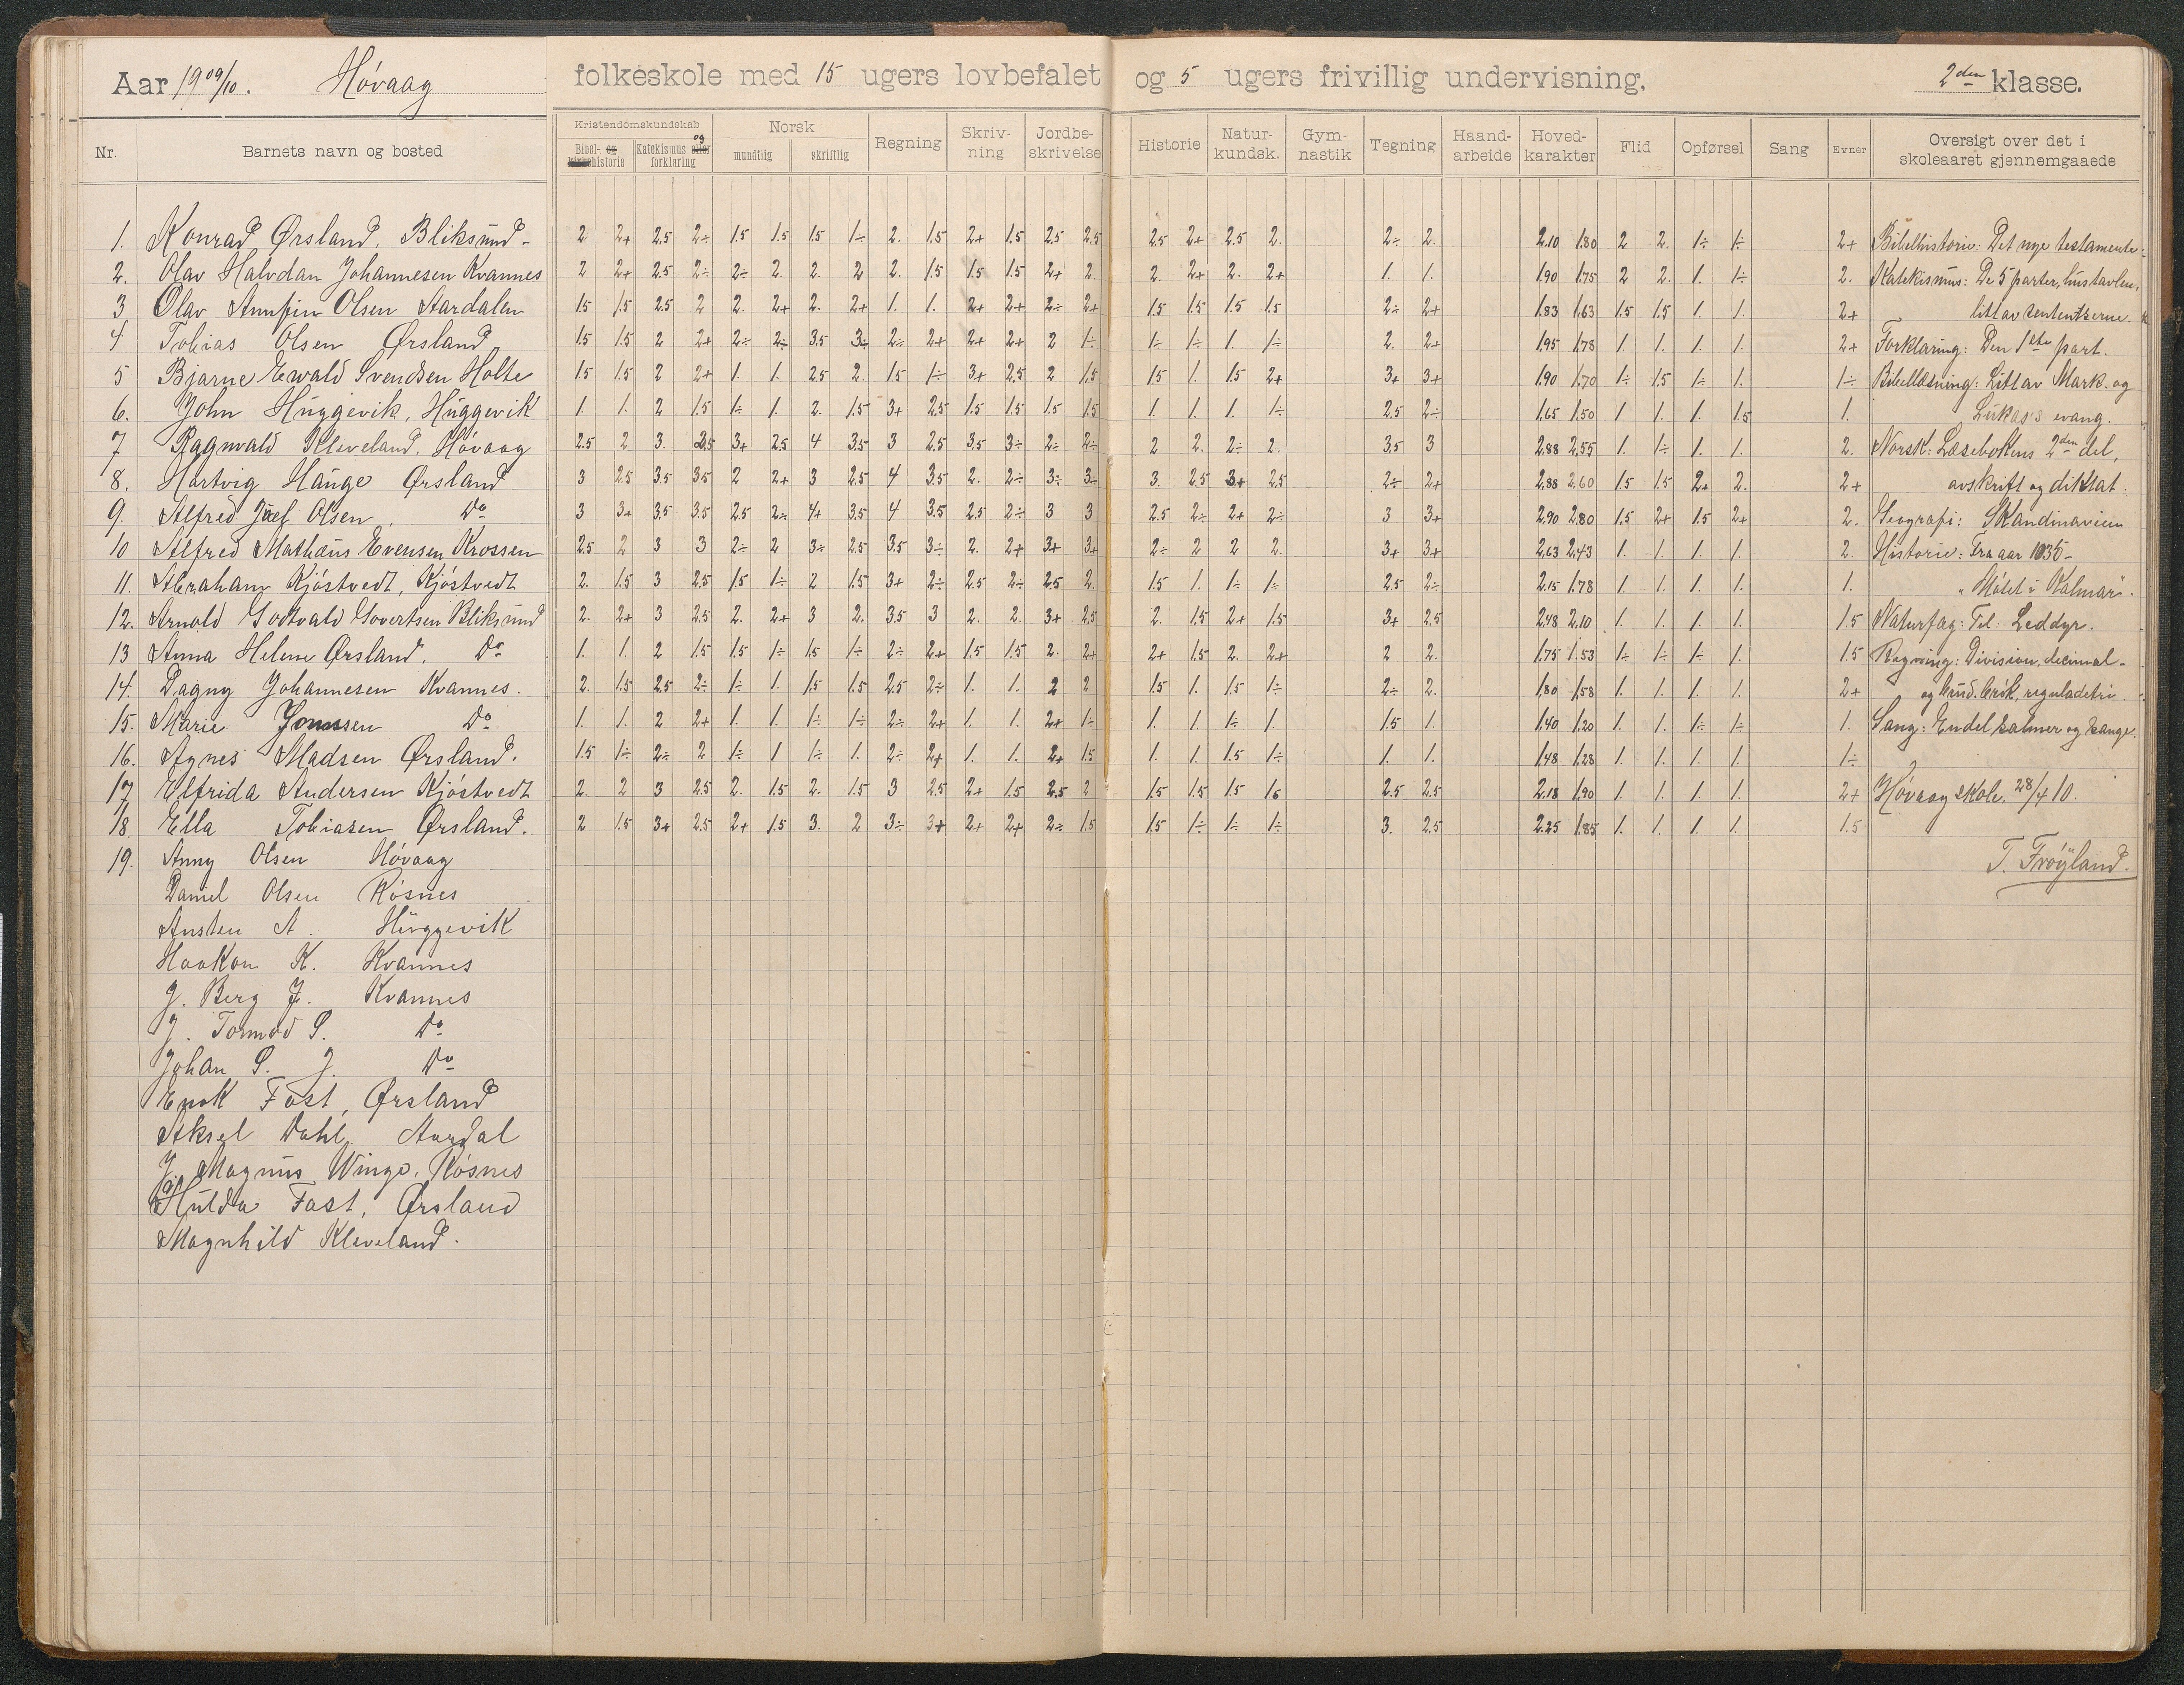 Aar 1909/10. Høvaag folkeskole med 15 ugers lovbefalet og 5 ugers frivillig undervisning. 2den klasse.
Nr. Barnets navn og bosted Kristendomskundskab Bibel- og kirkehistorie Katekismus og eller forklaring Norsk mundtlig skriftlig Regning Skrivning Jordbeskrivelse Historie Naturkundsk. Gymnastik Tegning Haandarbeide Hovedkarakter Flid Opførsel Sang Evner Oversigt over det i skoleaaret gjennemgaaede
1. Konrad Ørsland, Bliksund- 2 2+ 2.5 2÷ 1.5 1.5 1.5 1÷ 2. 1.5 2+ 1.5 2.5 2.5 2.5 2+ 2.5 2. 2÷ 2. 2.10 1.80 2 2. 1÷ 1÷ 2+ Bibelhistorie: Det nye testamente.
2. Olav Halvdan Johannesen Kvannes 2 2+ 2.5 2÷ 2÷ 2. 2. 2 2. 1.5 1.5 1.5 2+ 2. 2. 2+ 2. 2+ 1. 1. 1.90 1.75 2 2. 1. 1÷ 2. Katekismus: De 5 parter, hustavlen,
3 Olav Annfin Olsen Aardalen 1.5 1.5 2.5 2 2. 2+ 2. 2+ 1. 1. 2+ 2+ 2÷ 2+ 1.5 1.5 1.5 1.5 2÷ 2+ 1.83 1.63 1.5 1.5 1. 1. 2+ litt av sententserne.
4 Tobias Olsen Ørsland 1.5 1.5 2 2+ 2÷ 2÷ 3.5 3÷ 2÷ 2+ 2+ 2+ 2 1÷ 1÷ 1÷ 1. 1÷ 2. 2+ 1.95 1.78 1. 1. 1. 1. 2+ Forklaring: Den 1ste part.
5 Bjarne Ewald Svendsen Holte 1.5 1.5 2 2+ 1. 1. 2.5 2. 1.5 1÷ 3+ 2.5 2 1.5 1.5 1. 1.5 2+ 3+ 3+ 1.90 1.70 1÷ 1.5 1÷ 1. 1÷ Bibellæsning: Litt av Mark. og
6. John Huggevik, Huggevik 1. 1. 2 1.5 1÷ 1. 2. 1.5 3+ 2.5 1.5 1.5 1.5 1.5 1. 1. 1. 1÷ 2.5 2÷ 1.65 1.50 1 1. 1. 1.5 1. Lukas's evang.
7 Ragnvald Kleveland, Høvaag 2.5 2 3. 2.5 3+ 2.5 4 3.5 3 2.5 3.5 3÷ 2÷ 2÷ 2 2. 2÷ 2. 3.5 3 2.88 2.55 1. 1÷ 1. 1. 2. Norsk: Læsebokens 2den del,
8. Hartvig Hauge Ørsland 3 2.5 3.5 3.5 2 2+ 3 2.5 4 3.5 2. 2÷ 3÷ 3÷ 3. 2.5 3+ 2.5 2÷ 2+ 2.88 2.60 1.5 1.5 2+ 2. 2+ avskrift og diktat.
9. Alfred Olsen, Do 3 3+ 3.5 3.5 2.5 2÷ 4+ 3.5 4 3.5 2.5 2÷ 3 3 2.5 2÷ 2+ 2÷ 3 3+ 2.90 2.80 1.5 2+ 1.5 2+ 2. Geografi: Skandinavien
10 Alfred Mathæus Evensen Krossen 2.5 2 3 3 2÷ 2 3÷ 2.5 3.5 3÷ 2. 2+ 3+ 3+ 2÷ 2 2 2. 3+ 3+ 2.63 2.43 1. 1. 1. 1. 2. Historie: Fra aar 1035-
11. Abraham Kjøstvedt, Kjøstvedt 2. 1.5 3 2.5 1.5 1÷ 2 1.5 3+ 2÷ 2.5 2÷ 2.5 2. 1.5 1. 1÷ 1÷ 2.5 2÷ 2.15 1.78 1. 1. 1. 1. 1. "Møtet i Kalmar".
12. Arnold Godtvald Govertsen Bliksund 2. 2+ 3 2.5 2. 2+ 3 2. 3.5 3 2. 2. 3+ 2.5 2. 1.5 2+ 1.5 3+ 2.5 2.48 2.10 1. 1. 1. 1. 1.5 Naturfag: Til Leddyr.
13 Anna Helene Ørsland. Do 1. 1. 2 1.5 1.5 1÷ 1.5 1÷ 2÷ 2+ 1.5 1.5 2. 2+ 2+ 1.5 2. 2+ 2 2. 1.75 1.53 1÷ 1÷ 1÷ 1. 1.5 Regning: Division, decimal-
14. Dagny Johannesen Kvannes. 2. 1.5 2.5 2÷ 1÷ 1. 1.5 1.5 2.5 2÷ 1. 1. 2 2 1.5 1. 1.5 1÷ 2÷ 2. 1.80 1.58 1. 1. 1. 1. 2+ og brøk, reguladetri
15. Marie Jonassen Do 1. 1. 2 2+ 1. 1. 1÷ 1÷ 2÷ 2+ 1. 1. 2+ 1÷ 1. 1. 1÷ 1. 1.5 1. 1.40 1.20 1. 1. 1÷ 1÷ 1. Sang: Endel salmer og sange.
16. Agnes Madsen Ørsland. 1.5 1÷ 2÷ 2 1÷ 1 1÷ 1. 2÷ 2+ 1. 1. 2+ 1.5 1. 1. 1.5 1÷ 1. 1. 1.48 1.28 1. 1. 1. 1. 1÷
17 Elfrida Andersen Kjøstvedt 2. 2 3 2.5 2. 1.5 2. 1.5 3 2.5 2+ 1.5 2.5 2 1.5 1.5 1.5 2.5 2.5 2.18 1.90 1. 1. 1. 1. 2+ Høvaag skole, 28/4 10.
18. Ella Tobiasen Ørsland. 2 1.5 3+ 2.5 2+ 1.5 3. 2 3÷ 3+ 2+ 2+ 2÷ 1.5 1.5 1÷ 1÷ 1÷ 3. 2.5 2.25 1.85 1. 1. 1. 1. 1.5
19. Anny Olsen Høvaag
T. Frøyland.
Daniel Olsen Røsnes
Austen A. Huggevik
Haakon K. Kvannes
J. Berg J. Kvannes
J. Tormod S. Do
Johan S. J. Do
Enok Fast, Ørsland
Aksel Dahl, Aardal
J. Magnus Winge, Røsnes
Hulda Fast, Ørsland
Magnhild Kleveland.